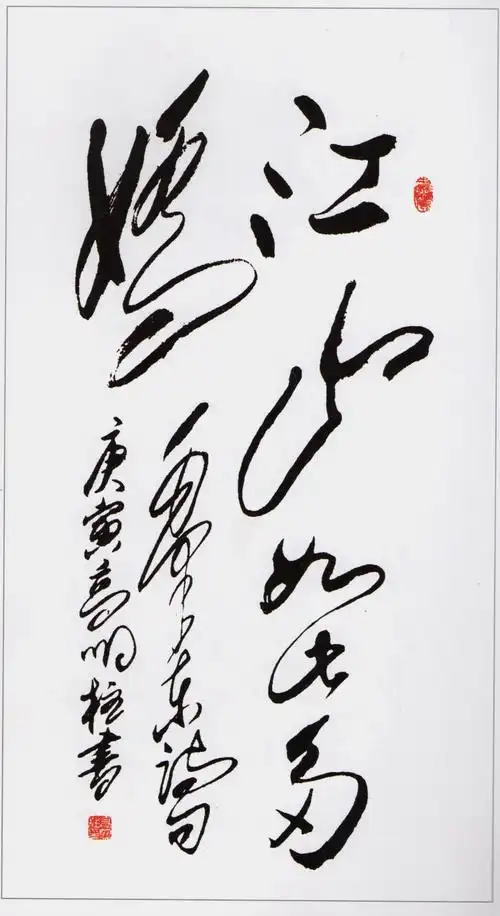 江山如此多
娇
毛泽东诗句
庚寅高明柱书